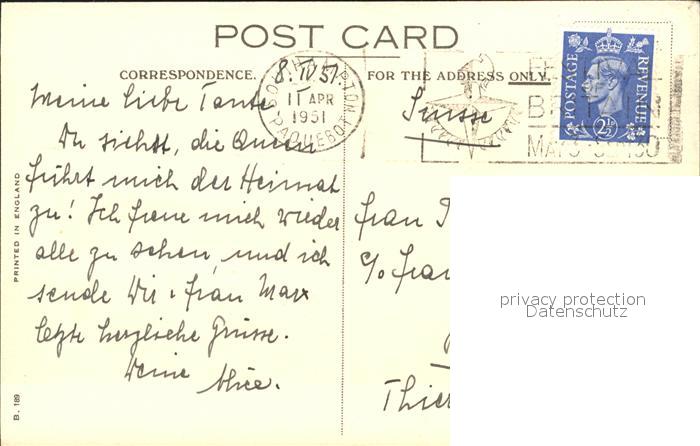 POST CARD
CORRESPONDENCE.
FOR THE ADDRESS ONLY.
8. IV 51.
SOUTHAMPTON
11 APR
1951
PAQUEBOT
POSTAGE
REVENUE
2½
MAY 3
Meine liebe Tante
Du siehst, die Queen
führt mich der Heimat
zu! Ich freue mich wieder
alle zu sehen und ich
sende Dir & Frau Marx
letzte herzliche Grüsse.
Deine Alice.
Suisse
Frau
c/o Frau
Thie
PRINTED IN ENGLAND
B. 189
privacy protection
Datenschutz